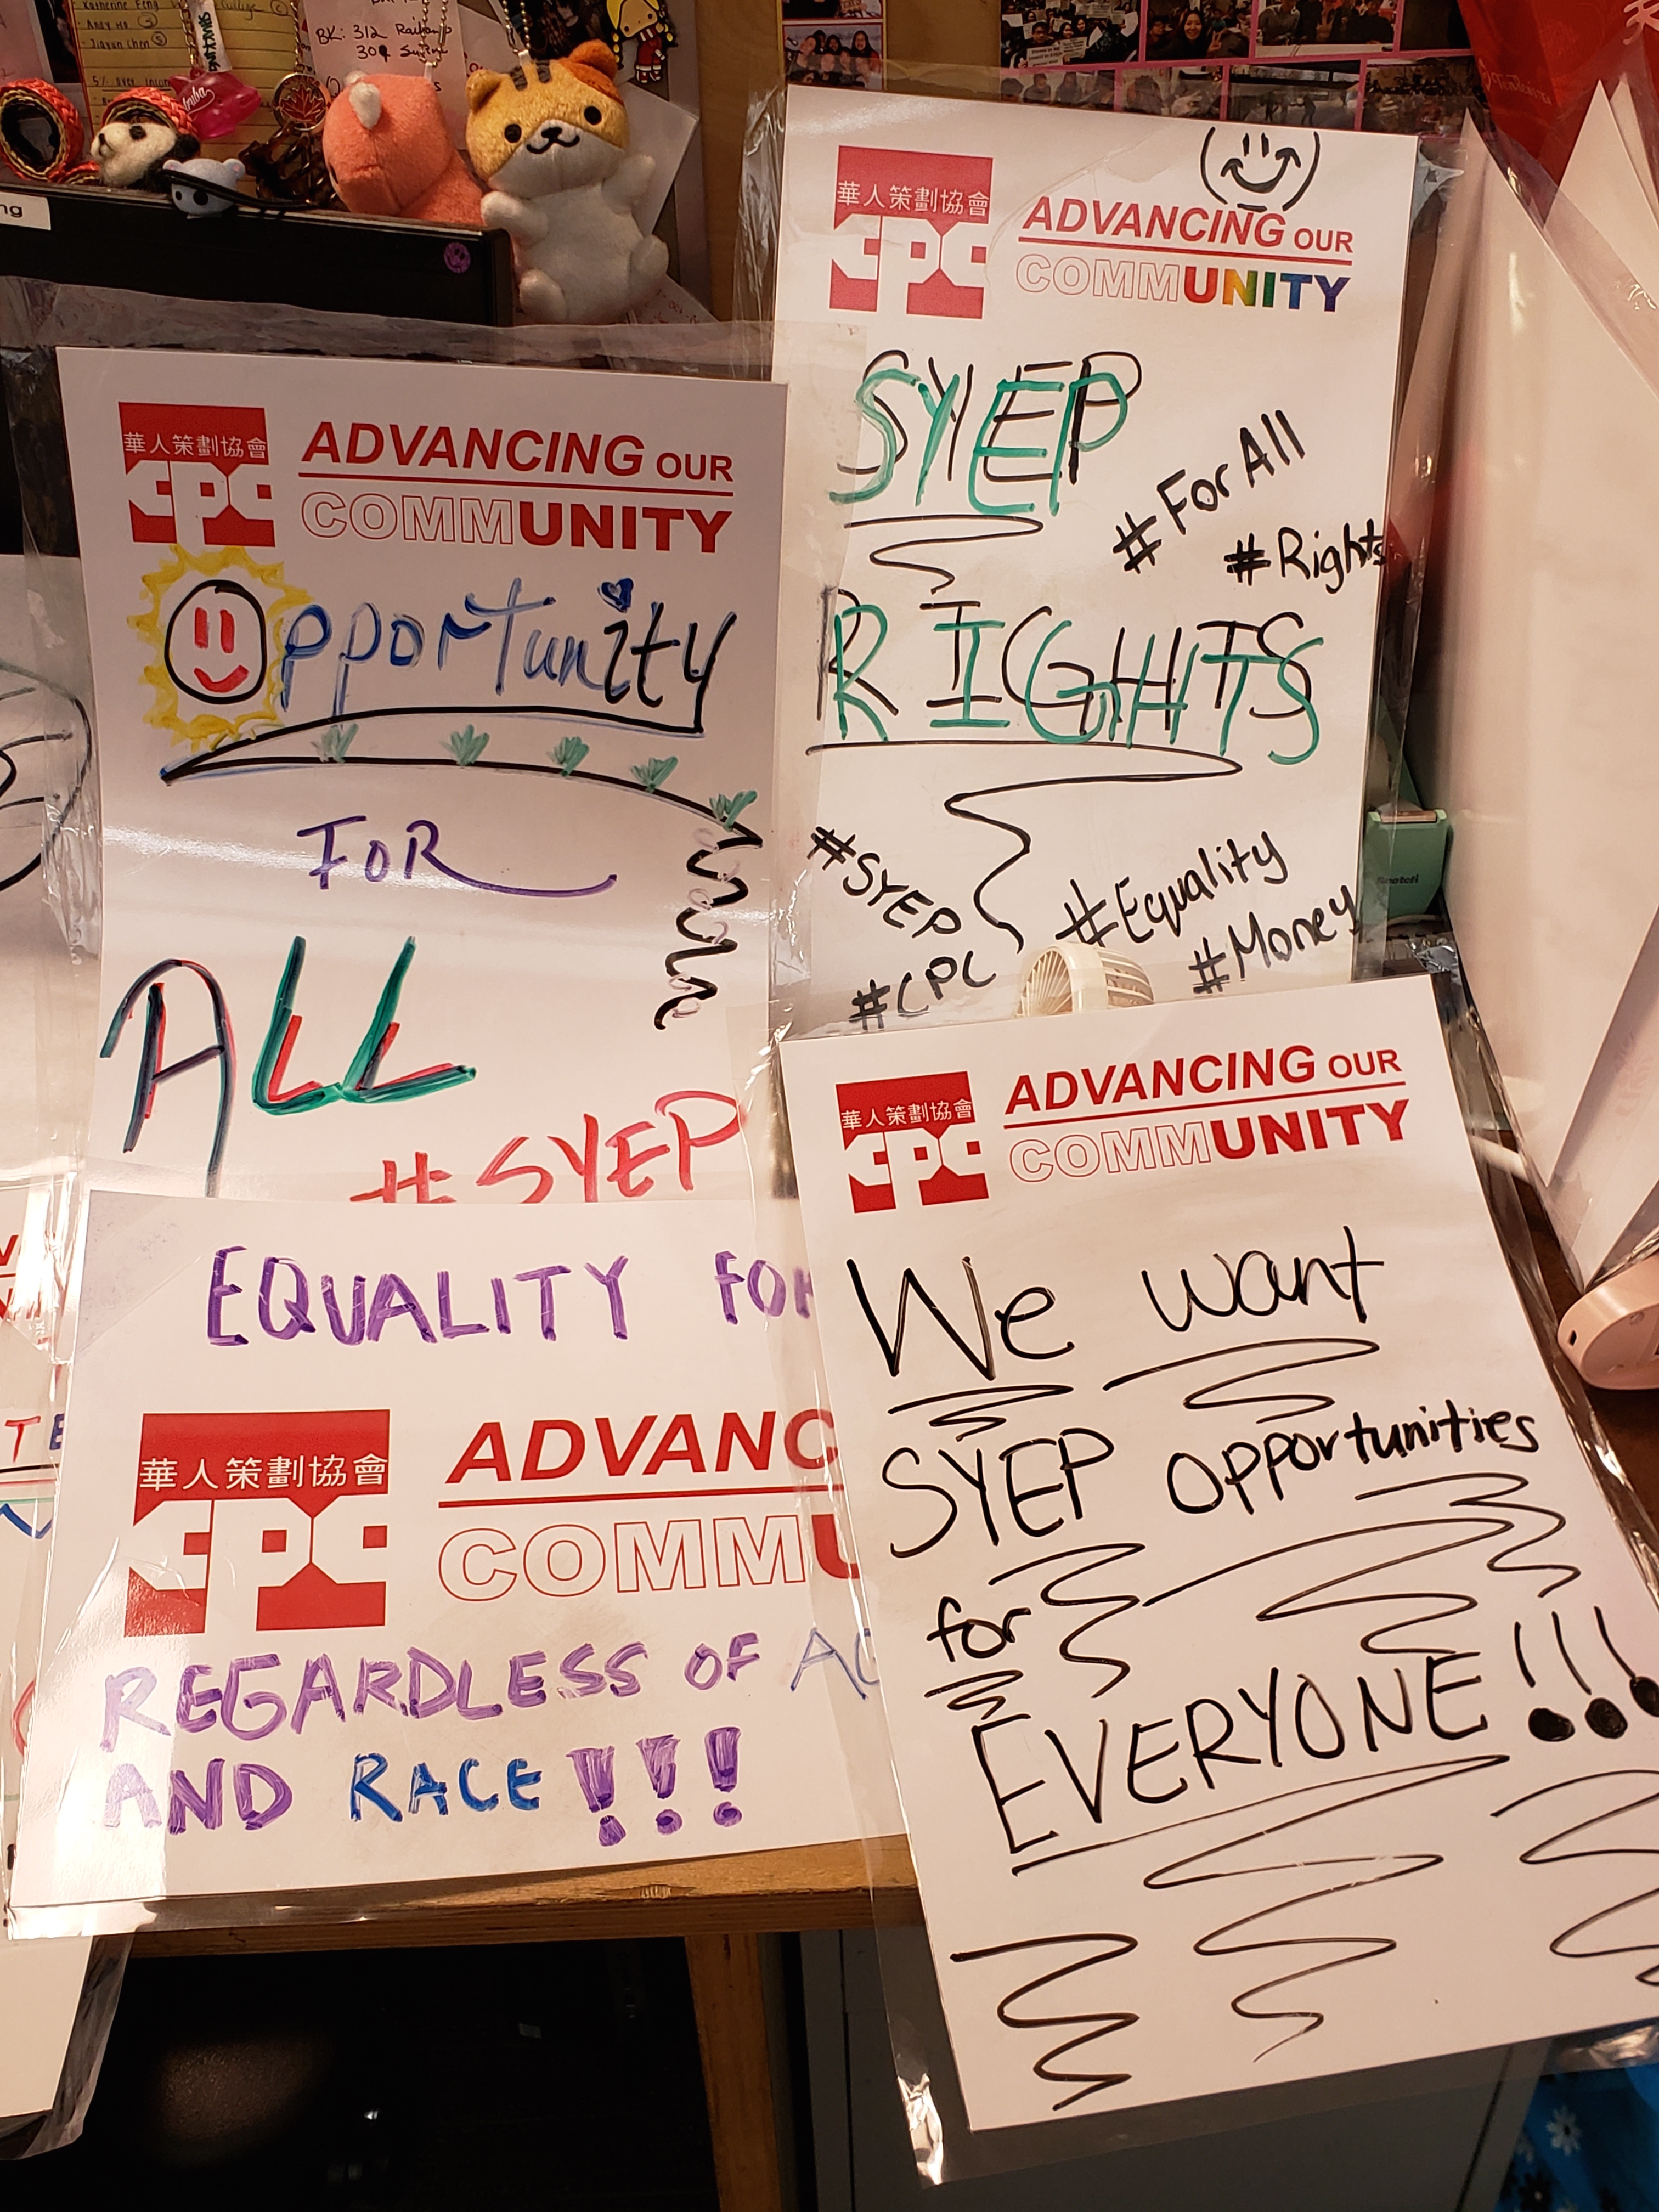 Katherine Feng
Andy Ho
Jiayun Chen
BK: 312
華人策劃協會
CPC
ADVANCING OUR
COMMUNITY
Opportunity
FOR
ALL
#SYEP
華人策劃協會
CPC
ADVANCING OUR
COMMUNITY
SYEP
#For All
#Rights
RIGHTS
#SYEP
#Equality
#CPC
#Money
EQUALITY FOR
華人策劃協會
CPC
ADVANC
COMMU
REGARDLESS OF
AND RACE!!!
華人策劃協會
CPC
ADVANCING OUR
COMMUNITY
We want
SYEP opportunities
for
EVERYONE!!!